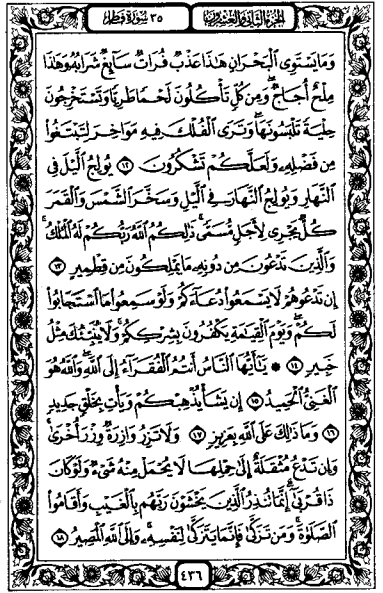 الجزء الثاني والعشرون ٣٥ سورة فاطر
وَمَا يَسْتَوِى ٱلْبَحْرَانِ هَٰذَا عَذْبٌ فُرَاتٌ سَآئِغٌ شَرَابُهُۥ وَهَٰذَا
مِلْحٌ أُجَاجٌ ۖ وَمِن كُلٍّ تَأْكُلُونَ لَحْمًا طَرِيًّا وَتَسْتَخْرِجُونَ
حِلْيَةً تَلْبَسُونَهَا ۖ وَتَرَى ٱلْفُلْكَ فِيهِ مَوَاخِرَ لِتَبْتَغُوا۟
مِن فَضْلِهِۦ وَلَعَلَّكُمْ تَشْكُرُونَ ١٢ يُولِجُ ٱلَّيْلَ فِى
ٱلنَّهَارِ وَيُولِجُ ٱلنَّهَارَ فِى ٱلَّيْلِ وَسَخَّرَ ٱلشَّمْسَ وَٱلْقَمَرَ
كُلٌّ يَجْرِى لِأَجَلٍ مُّسَمًّى ۚ ذَٰلِكُمُ ٱللَّهُ رَبُّكُمْ لَهُ ٱلْمُلْكُ ۚ
وَٱلَّذِينَ تَدْعُونَ مِن دُونِهِۦ مَا يَمْلِكُونَ مِن قِطْمِيرٍ ١٣
إِن تَدْعُوهُمْ لَا يَسْمَعُوا۟ دُعَآءَكُمْ وَلَوْ سَمِعُوا۟ مَا ٱسْتَجَابُوا۟
لَكُمْ ۖ وَيَوْمَ ٱلْقِيَٰمَةِ يَكْفُرُونَ بِشِرْكِكُمْ ۚ وَلَا يُنَبِّئُكَ مِثْلُ
خَبِيرٍ ١٤ ۞ يَٰٓأَيُّهَا ٱلنَّاسُ أَنتُمُ ٱلْفُقَرَآءُ إِلَى ٱللَّهِ ۖ وَٱللَّهُ هُوَ
ٱلْغَنِىُّ ٱلْحَمِيدُ ١٥ إِن يَشَأْ يُذْهِبْكُمْ وَيَأْتِ بِخَلْقٍ جَدِيدٍ
١٦ وَمَا ذَٰلِكَ عَلَى ٱللَّهِ بِعَزِيزٍ ١٧ وَلَا تَزِرُ وَازِرَةٌ وِزْرَ أُخْرَىٰ ۚ
وَإِن تَدْعُ مُثْقَلَةٌ إِلَىٰ حِمْلِهَا لَا يُحْمَلْ مِنْهُ شَىْءٌ وَلَوْ كَانَ
ذَا قُرْبَىٰٓ ۗ إِنَّمَا تُنذِرُ ٱلَّذِينَ يَخْشَوْنَ رَبَّهُم بِٱلْغَيْبِ وَأَقَامُوا۟
ٱلصَّلَوٰةَ ۚ وَمَن تَزَكَّىٰ فَإِنَّمَا يَتَزَكَّىٰ لِنَفْسِهِۦ ۚ وَإِلَى ٱللَّهِ ٱلْمَصِيرُ ١٨
٤٣٦